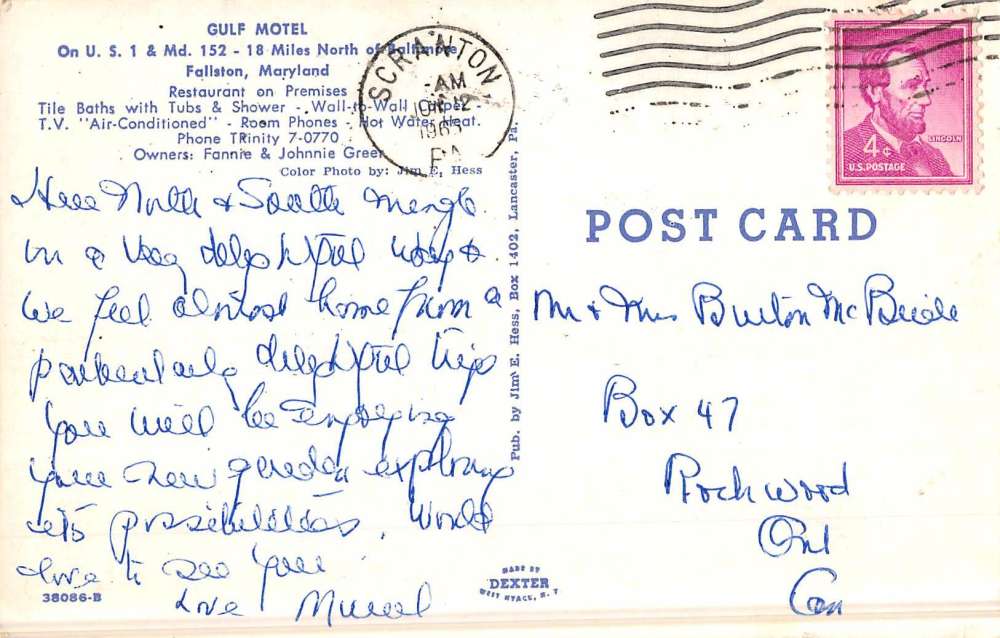 GULF MOTEL
On U. S. 1 & Md. 152 - 18 Miles North of Baltimore
Fallston, Maryland
Restaurant on Premises
Tile Baths with Tubs & Shower - Wall-to-Wall Carpet -
T.V. "Air-Conditioned" - Room Phones - Hot Water Heat.
Phone TRinity 7-0770
Owners: Fannie & Johnnie Greer
Color Photo by: Jim E. Hess
SCRANTON,
-AM
JUN 12
PA
4¢
LINCOLN
U.S. POSTAGE
Here North & South mingle
in a very delightful way &
we feel almost home from a
particularly delightful trip
You will be enjoying
your new garden exploring
its possibilities. Would
love to see you
Love Muriel
38086-B
Pub. by Jim E. Hess, Box 1402, Lancaster, Pa.
MADE BY
DEXTER
WEST NYACK, N. Y.
POST CARD
Mr & Mrs Burton McBride
Box 47
Rockwood
Ont
Can